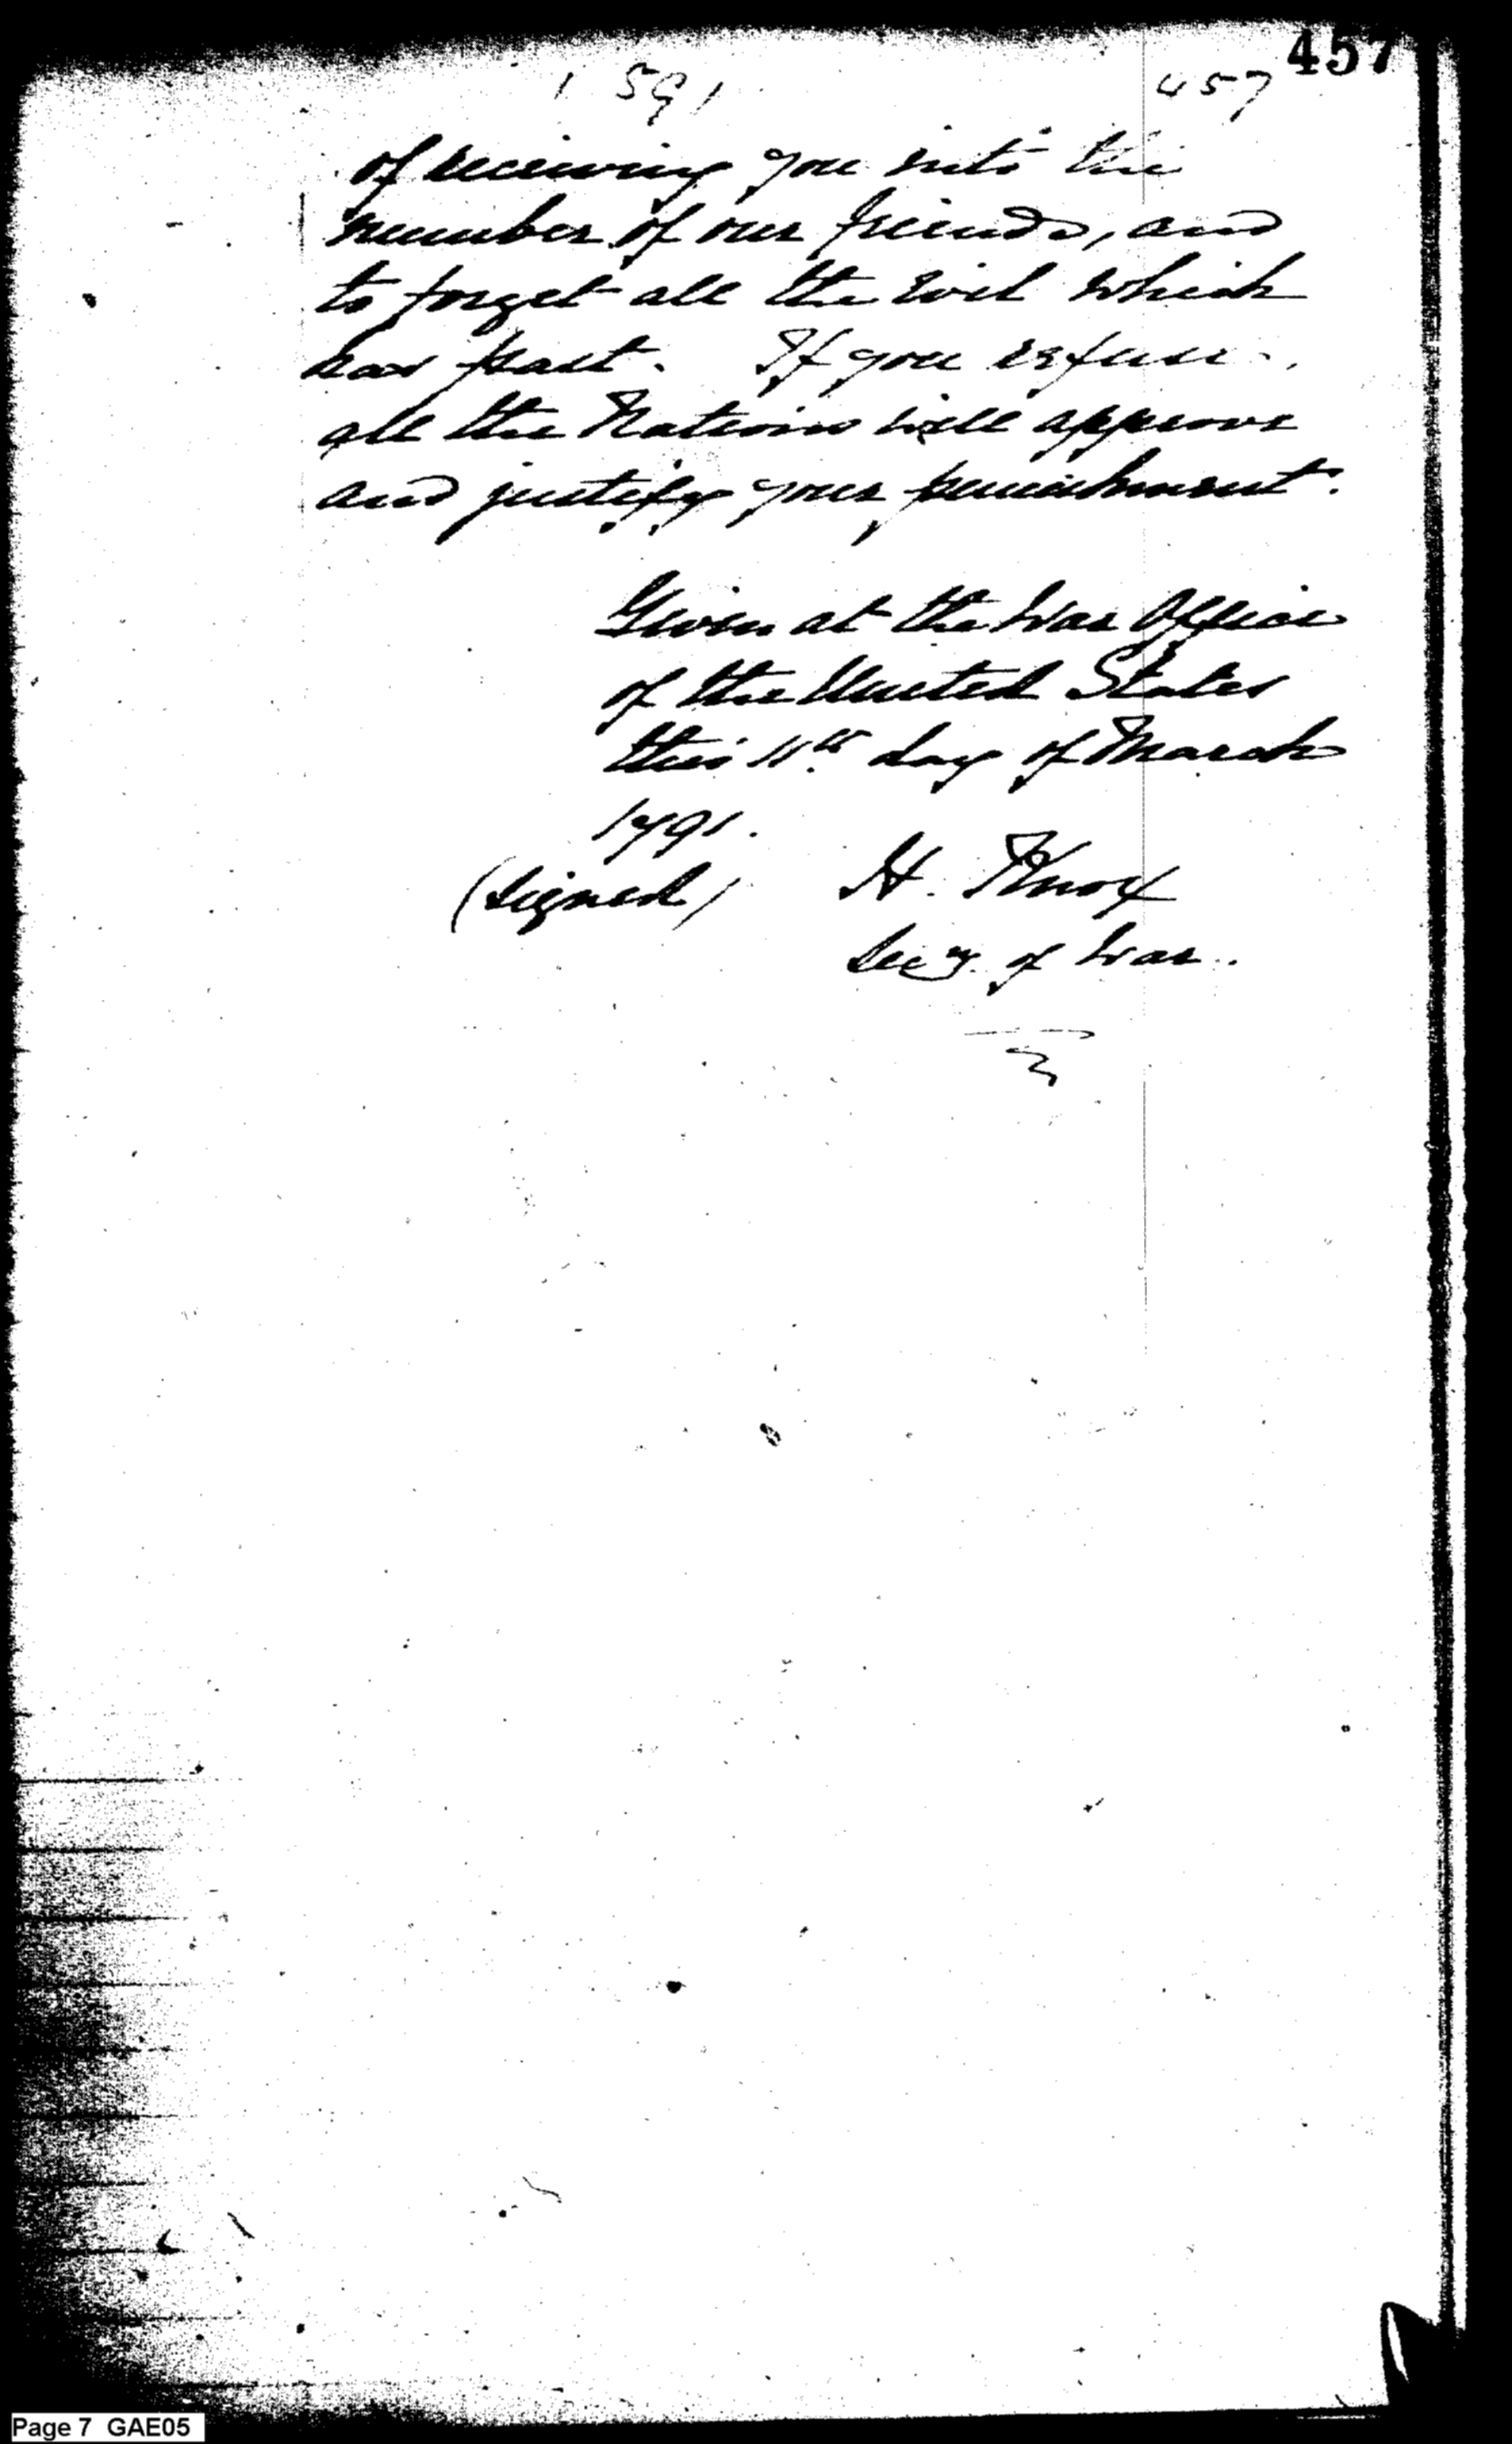 457
( 591 )
457
of receiving you into the
number of our friends, and
to forget all the evil which
has past. If you refuse,
all the Nations will approve
and justify your punishment.
Given at the War Office
of the United States
this 11th day of March
1791.
(signed) H. Knox
Secy. of War.
Page 7 GAE05